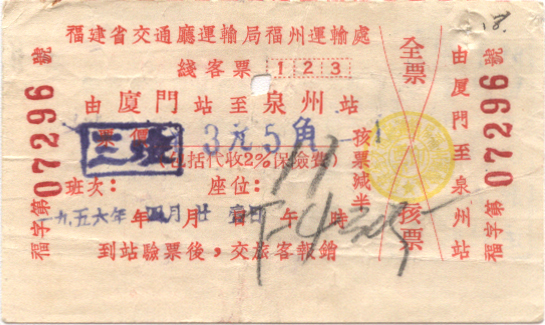 福建省交通廳運輸局福州運輸處
綫客票 1 2 3
由廈門站至泉州站
票價 3元5角
(包括代收2%保險費)
孩票減半
班次: 座位:
一九五六年 年四月廿 日 午 時
到站驗票後,交旅客報銷
福字第 07296 號
全票
孩票
由廈門至泉州站
福字第 07296 號